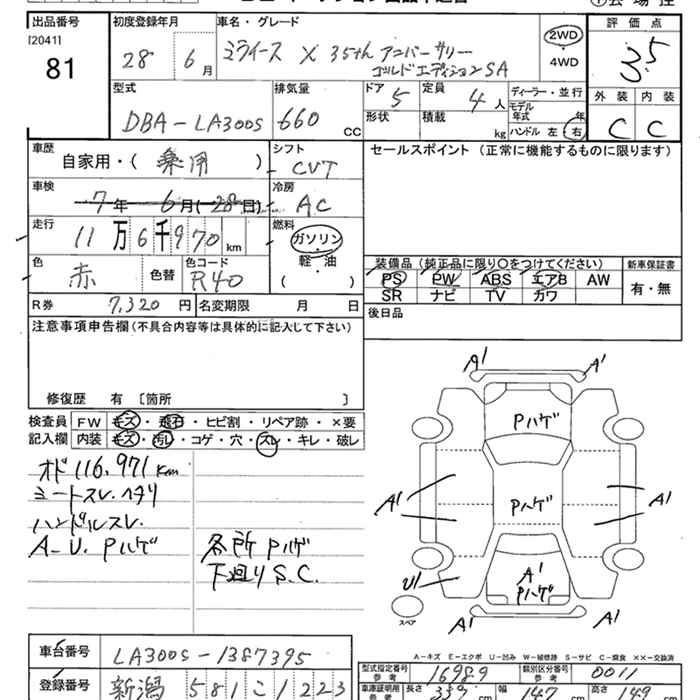 出品番号 初度登録年月 車名・グレード 評価点
[2041] 28 6月 ミライース X 35th アニバーサリー 2WD 3.5
81 ゴールドエディションSA 4WD
型式 排気量 ドア 定員 ディーラー・並行 外装 内装
DBA-LA300S 660 CC 5 4人 モデル年式 年 C C
形状 積載 kg ハンドル 左・右
車歴 シフト セールスポイント (正常に機能するものに限ります)
自家用・(乗用) CVT
車検 冷房
7年 6月(28日) AC
走行 燃料
11万6千970km ガソリン
色 色コード 軽・油
赤 色替 R40 ( ・ )
装備品(純正品に限り〇をつけてください) 新車保証書
PS PW ABS エアB AW 有・無
SR ナビ TV カワ
R券 7,320円 名変期限 月 日
後日品
注意事項申告欄(不具合内容等は具体的に記入して下さい)
修復歴 有 [箇所 ]
検査員 FW キズ・飛石・ヒビ割・リペア跡・×要
記入欄 内装 キズ・汚レ・コゲ・穴・スレ・キレ・破レ
オド116,971km
ミートスレ.ヘタリ
ハンドルスレ.
A-U. Pハゲ 各所Pハゲ
下廻りS.C.
A1 A1
Pハゲ
A1 Pハゲ A1
U1 A1 Pハゲ
スペア A1 A1
A-キズ E-エクボ U-凹み W-補修跡 S-サビ C-腐食 ××-交換済
車台番号 LA300S-1387395
型式指定番号 参考 16989 類別区分番号 参考 0011
登録番号 新潟 581 こ 1223
車庫証明用 参考 長さ 339 cm 幅 147 cm 高さ 149 cm